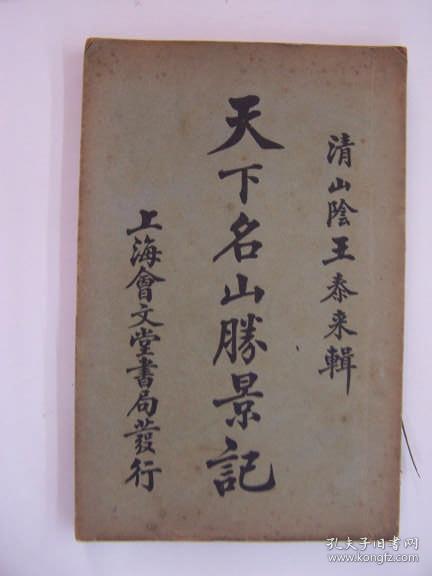 清山陰王泰来輯
天下名山勝景記
上海會文堂書局發行
孔夫子旧书网